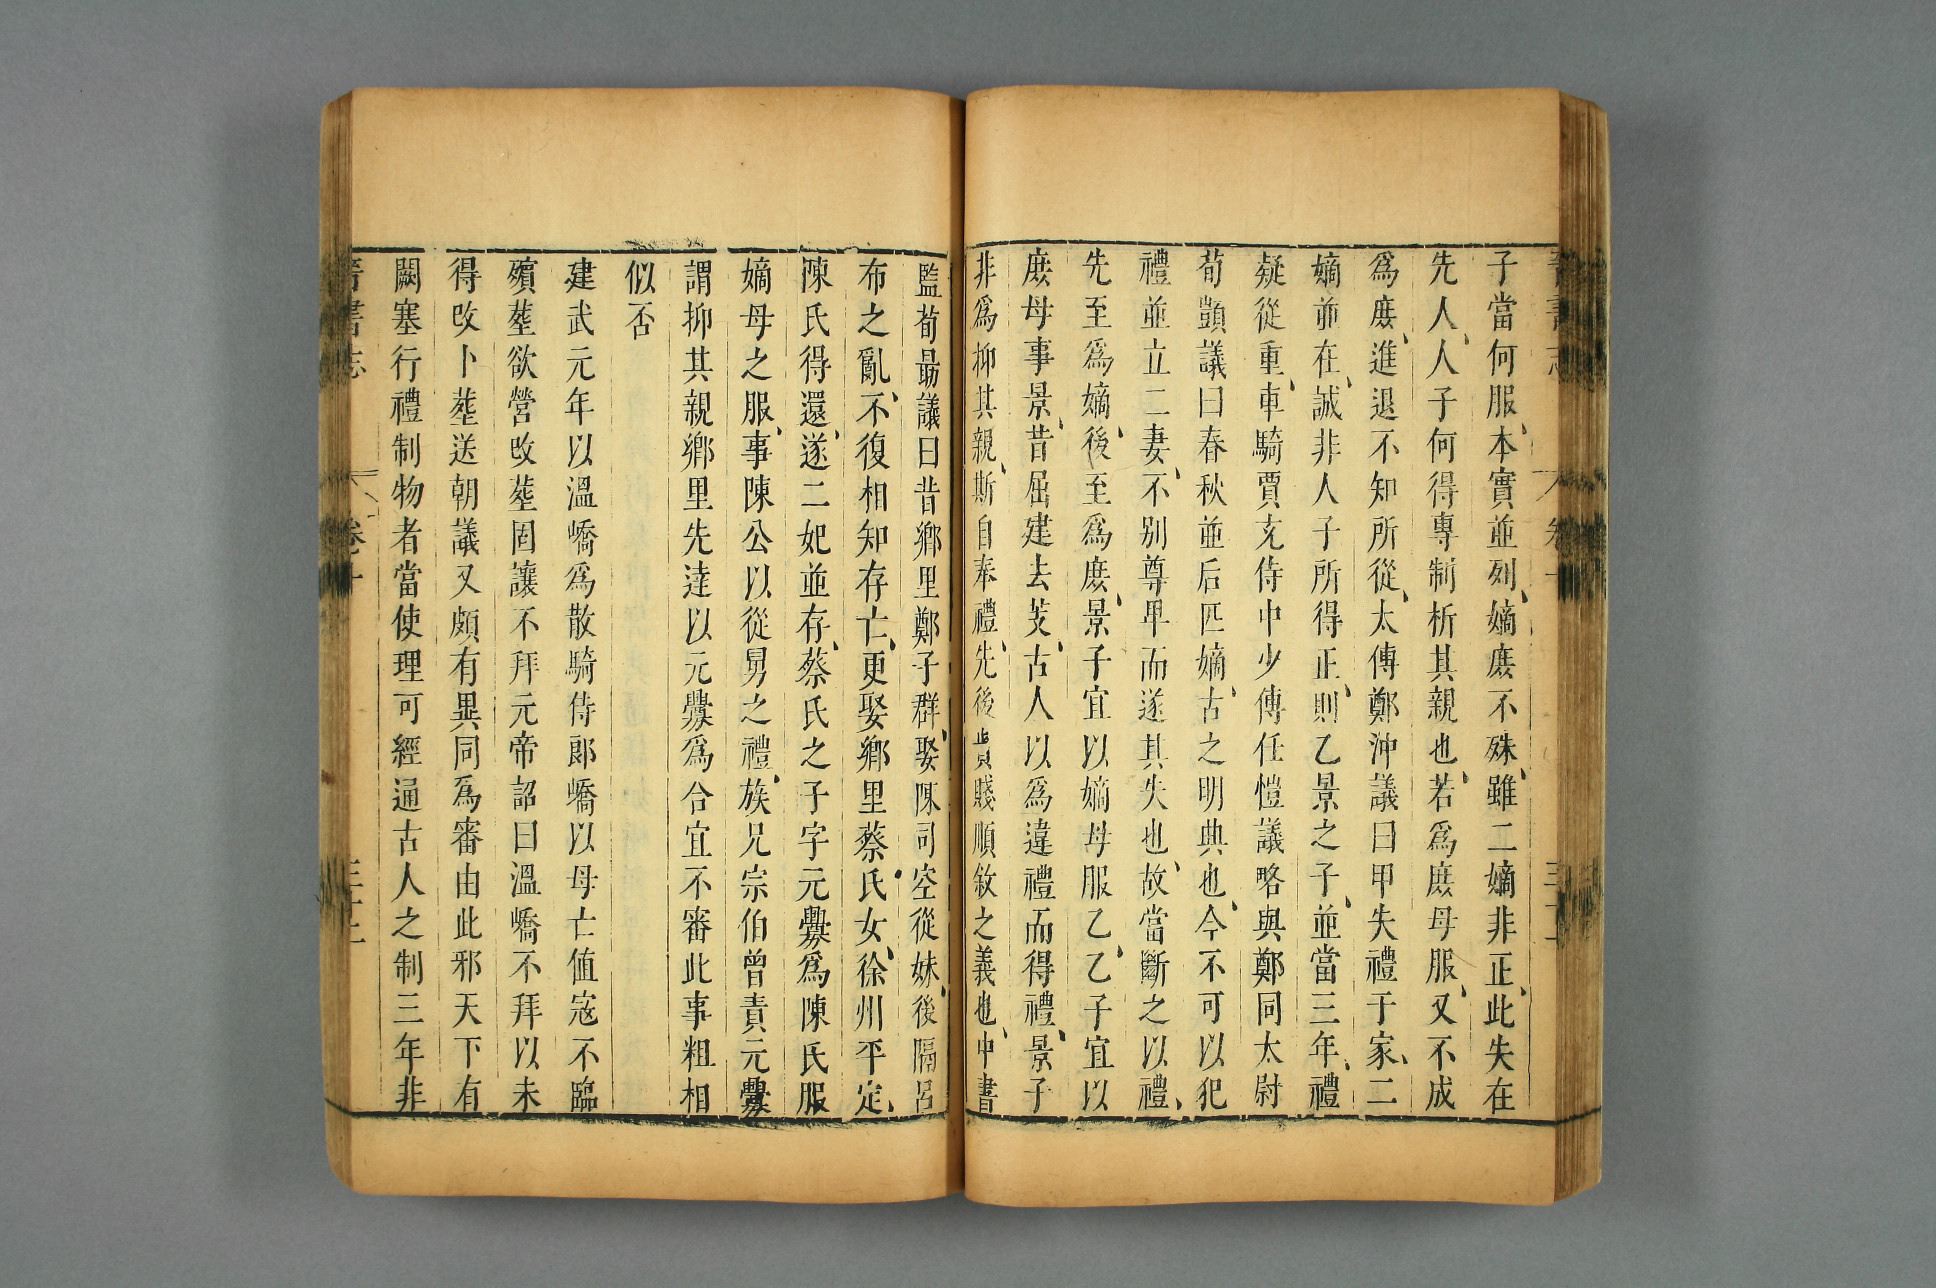 子當何服、本實並列、嫡庶不殊、雖二嫡非正、此失在
先人、人子何得專制析其親也、若爲庶母服、又不成
爲庶、進退不知所從、太傅鄭沖議曰甲失禮于家、二
嫡並在、誠非人子所得正、則乙景之子、並當三年、禮
疑從重、車騎賈充侍中少傅任愷議略與鄭同太尉
荀顗議曰春秋並后匹嫡、古之明典也、今不可以犯
禮並立二妻、不别尊卑而遂其失也、故當斷之以禮、
先至爲嫡、後至爲庶、景子宜以嫡母服乙、乙子宜以
庶母事景、昔屈建去芰、古人以爲違禮而得禮、景子
非爲抑其親、斯自奉禮、先後貴賤順敘之義也、中書
監荀朂議曰昔鄉里鄭子群、娶陳司空從妹、後隔呂
布之亂、不復相知存亡、更娶鄉里蔡氏女、徐州平定、
陳氏得還、遂二妃並存、蔡氏之子字元釁爲陳氏服
嫡母之服、事陳公以從舅之禮、族兄宗伯曾責元釁
謂抑其親鄉里先達以元釁爲合宜不審此事粗相
似否
建武元年以溫嶠爲散騎侍郎嶠以母亡值寇不臨
殯葬欲營改葬固讓不拜元帝詔曰溫嶠不拜以未
得改卜葬送朝議又頗有異同爲審由此邪天下有
闕塞行禮制物者當使理可經通古人之制三年非
晉書志 卷十